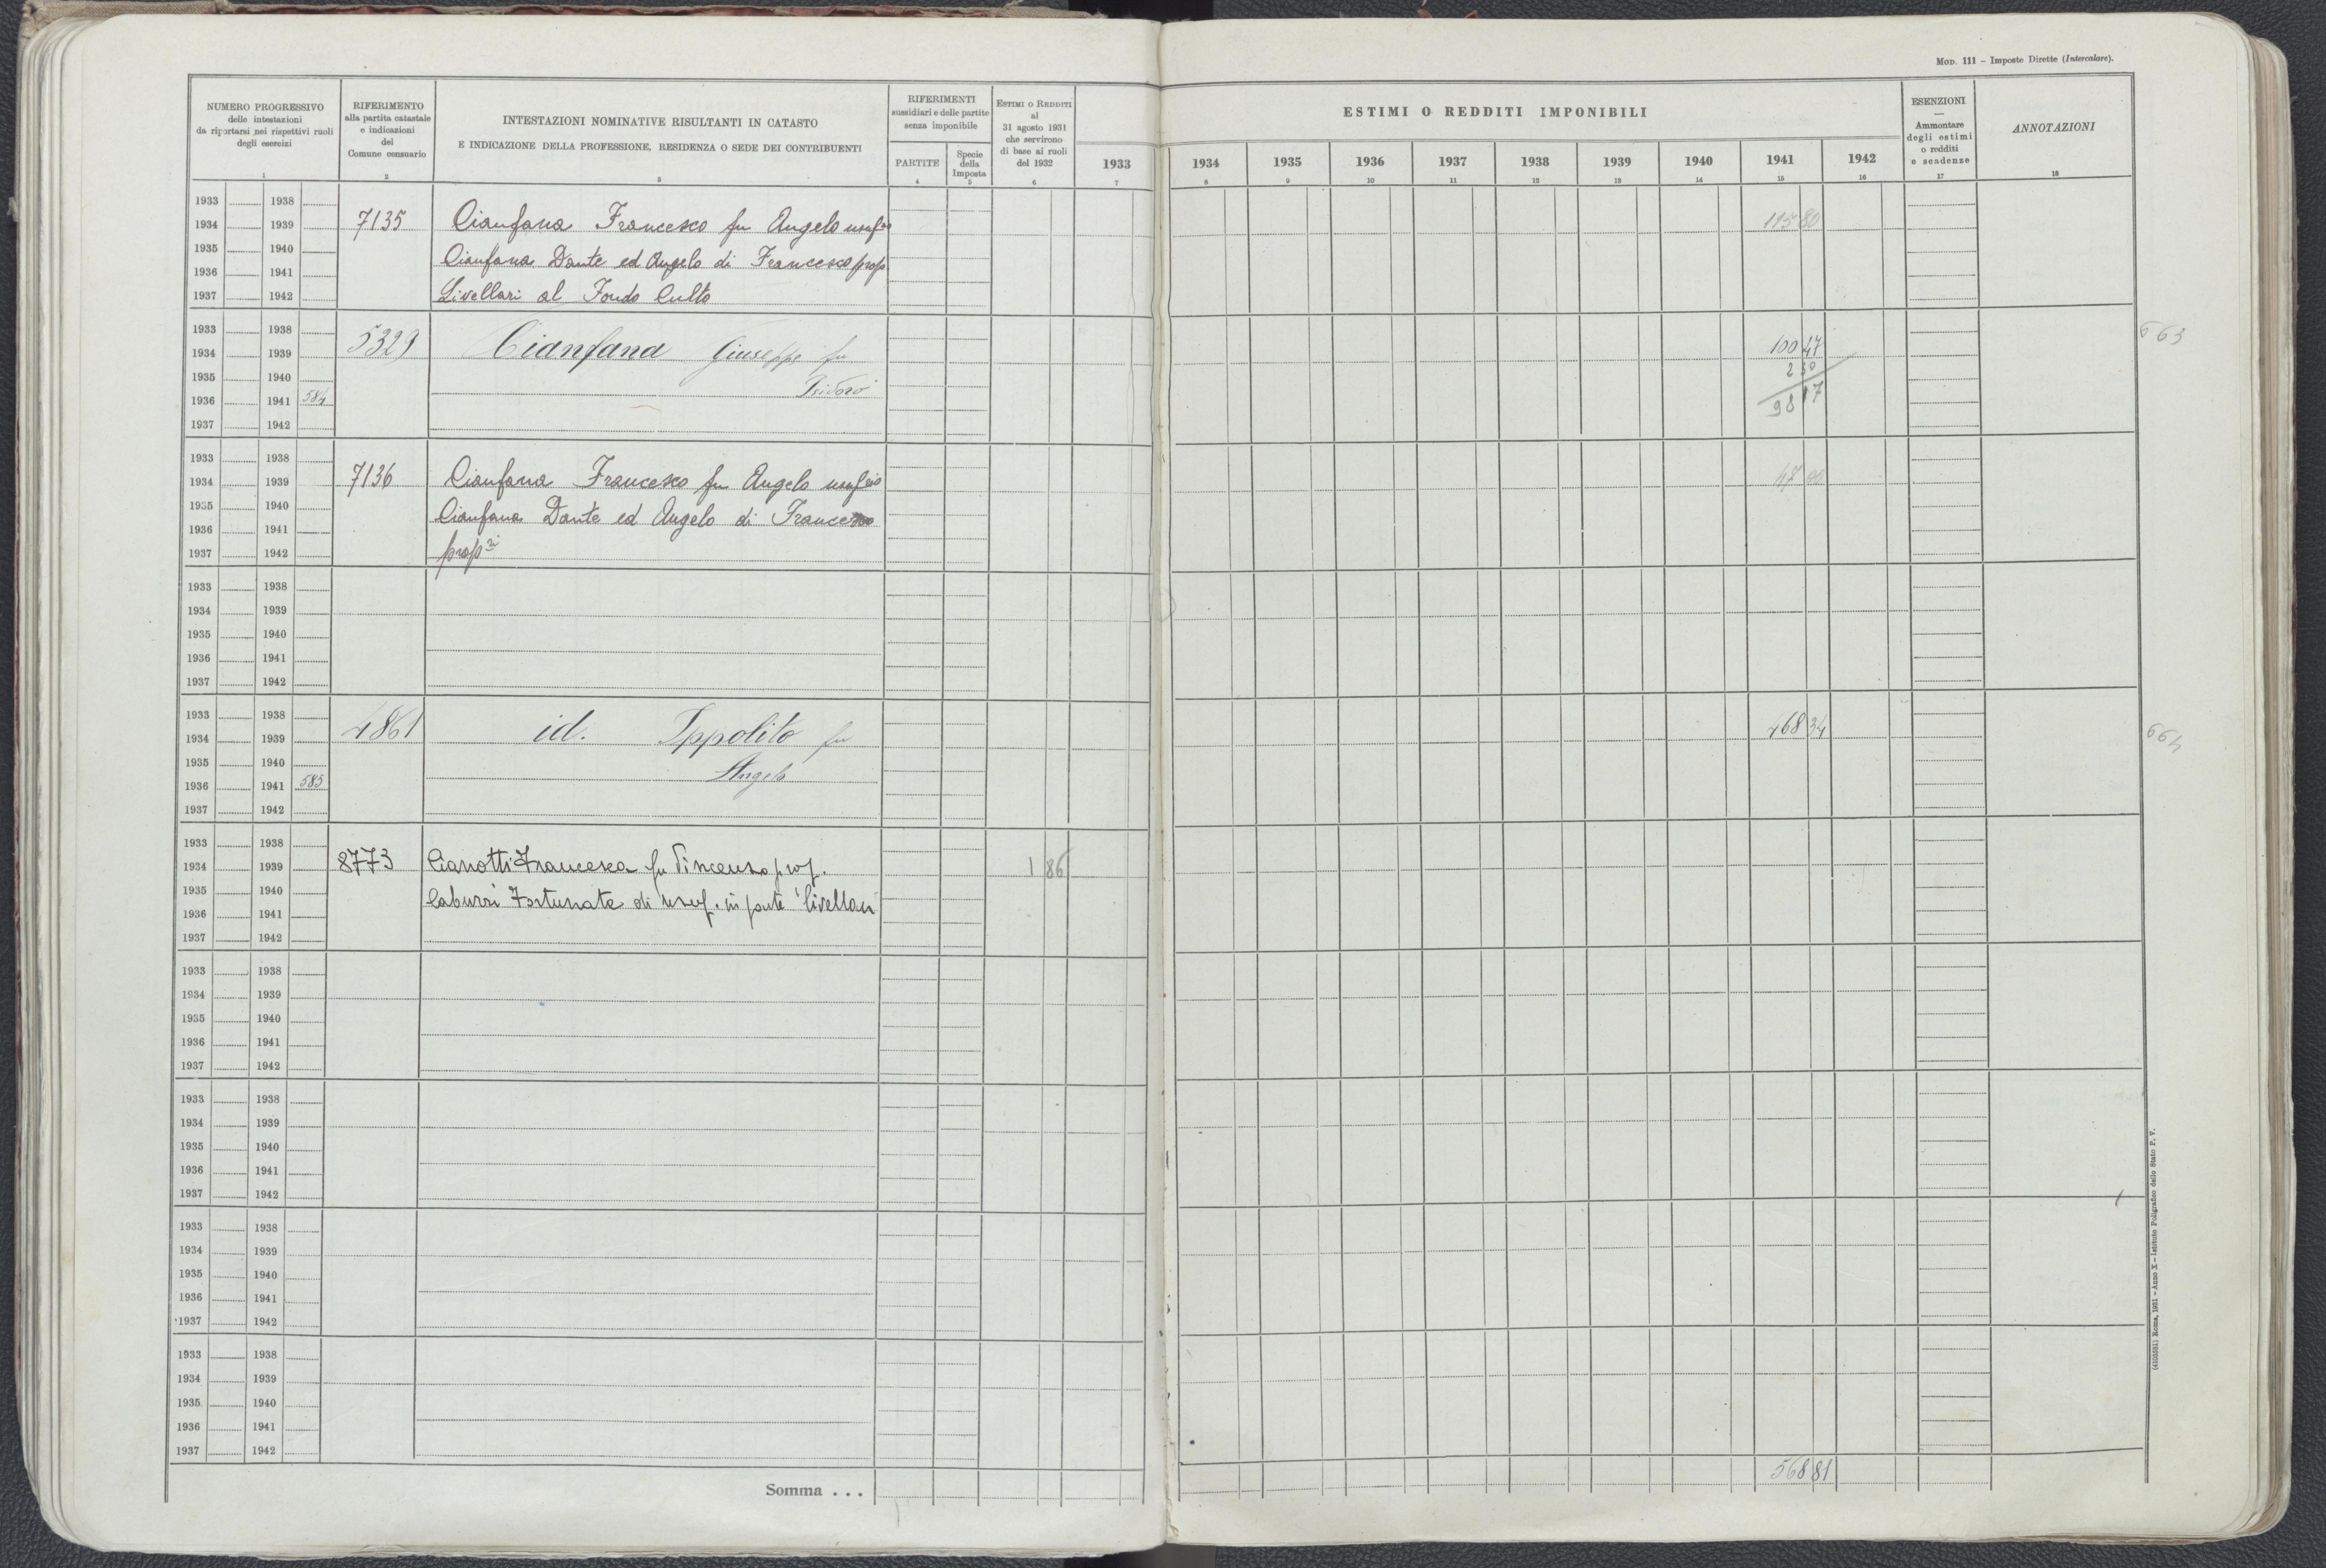 MOD. 111 – Imposte Dirette (Intercalare).
NUMERO PROGRESSIVO
delle intestazioni
da riportarsi nei rispettivi ruoli
degli esercizi
1
RIFERIMENTO
alla partita catastale
e indicazioni
del
Comune censuario
2
INTESTAZIONI NOMINATIVE RISULTANTI IN CATASTO
E INDICAZIONE DELLA PROFESSIONE, RESIDENZA O SEDE DEI CONTRIBUENTI
3
RIFERIMENTI
sussidiari e delle partite
senza imponibile
PARTITE
4
Specie
della
Imposta
5
ESTIMI O REDDITI
al
31 agosto 1931
che servirono
di base ai ruoli
del 1932
6
ESTIMI O REDDITI IMPONIBILI
1933 1934 1935 1936 1937 1938 1939 1940 1941 1942
7 8 9 10 11 12 13 14 15 16
ESENZIONI
—
Ammontare
degli estimi
o redditi
e scadenze
17
ANNOTAZIONI
18
1933 1938
1934 1939 7135 Cianfana Francesco fu Angelo 115 80
1935 1940 Cianfana Dante ed Angelo di Francesco prop
1936 1941
1937 1942 Livellari al Fondo Culto
1933 1938 663
1934 1939 5329 Cianfana Giuseppe fu 100 47
1935 1940 2 30
1936 1941 584 Isidoro 98 17
1937 1942
1933 1938
1934 1939 7136 Cianfana Francesco fu Angelo 47
1935 1940 Cianfana Dante ed Angelo di Francesco
1936 1941
1937 1942 propri
1933 1938
1934 1939
1935 1940
1936 1941
1937 1942
1933 1938
1934 1939 4861 id. Ippolito fu 468 34 664
1935 1940 Angelo
1936 1941 585
1937 1942
1933 1938
1934 1939 8773 Cianotti Francesca fu Vincenzo prop. 1 86
1935 1940 Caburri Fortunata di usuf. in parte livellari
1936 1941
1937 1942
1933 1938
1934 1939
1935 1940
1936 1941
1937 1942
1933 1938
1934 1939
1935 1940
1936 1941
1937 1942
1933 1938
1934 1939
1935 1940
1936 1941
1937 1942
1933 1938
1934 1939
1935 1940
1936 1941
1937 1942
Somma . . . 568 81
(4103551) Roma, 1931 – Anno X – Istituto Poligrafico dello Stato P. V.